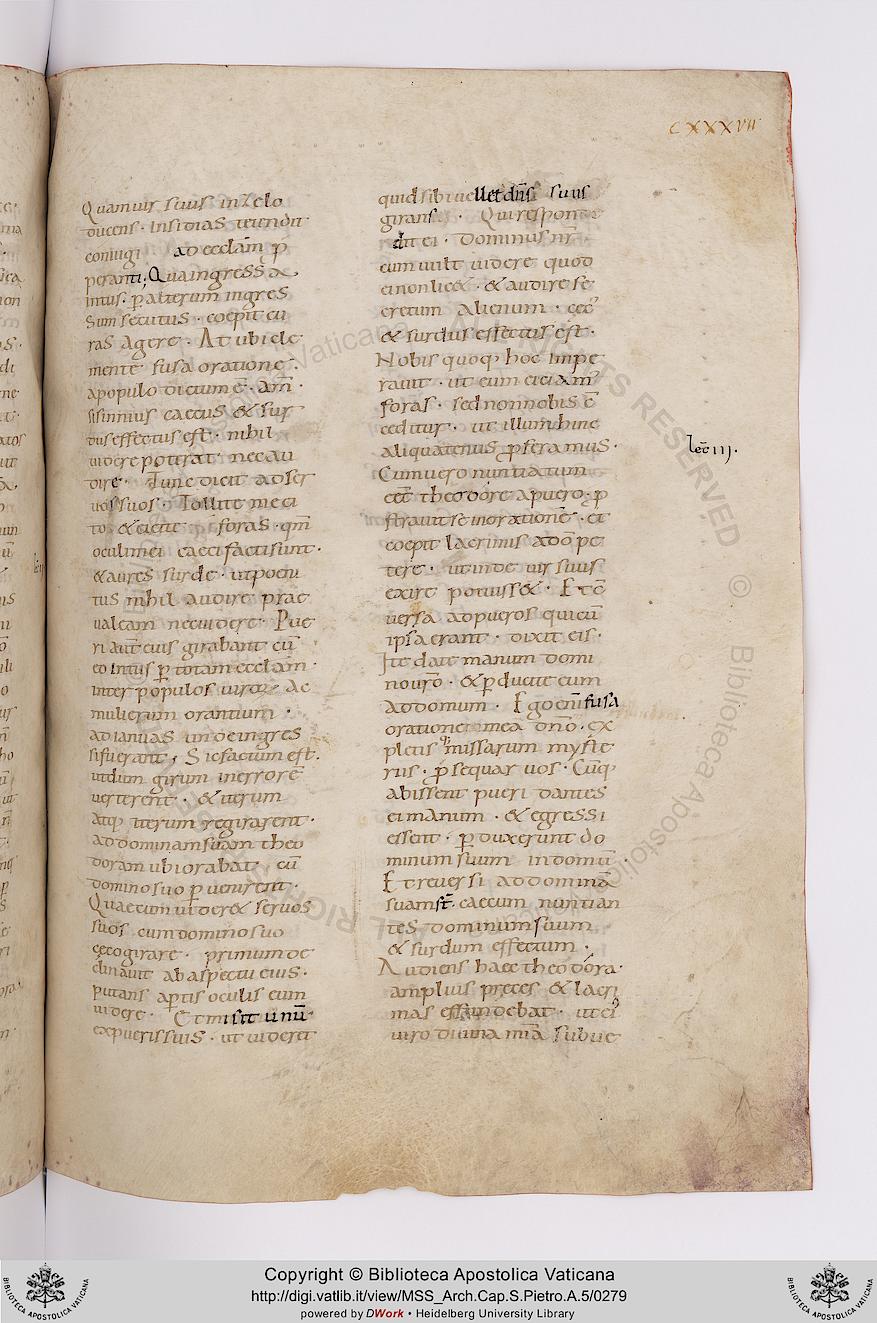 CXXXVII
Quamuis suus inzelo
ducens · insidias tetendit
coniugi ad eccłam p̄
peranti; Quaingressa
intus · ꝑ alterum ingres
sum secutus · coepit cu
ras agere · At ubi cle
mente fusa oratione ·
apopulo dictum ē · am̄ ·
sisinnius caecus & sur
dus effectus est · nihil
uidere poterat · nec au
dire · Tunc dicit adser
uos suos · Tollite me ci
to · & eicite foras · qm̄
oculi mei caeci facti sunt ·
& aures surde · ut poeni
tus nihil audire prae
ualeam nec uidere · Pue
ri aut̄ eius girabant cū
eo intus ꝑ totam eccłam ·
inter populos uiroꝝ Ac
mulierum orantium ·
ad ianuas unde ingres
si fuerant, Sic factum est ·
ut dum girum in errorē
uerterent · & iterum
atq; iterum regirarent ·
ad dominam suam theo
doram ubi orabat cū
domino suo ꝑ uenirent ·
Quae cum uider& seruos
suos cum domino suo
cęco girare · primum de
clinauit ab aspectu eius ·
putans aꝑtis oculis eum
uidere · Et misit unū
ex pueris suis · ut uideret
quid sibi uellet dn̄s suus
girans · Qui respon
dit ei · Dominus nr̄
cum uult uidere quod
ei non lic& · & audire se
cretum alienum · cęc'
& surdus effectus est ·
Nobis quoq; hoc impe
rauit · ut eum eiciam'
foras · sed non nobis c̄
ceditur · ut illum hinc
aliquatenus ꝓferamus ·
Cum uero nuntiatum
eēt theodore a puero · ꝓ
strauit se in orationē · et
coepit lacrimis a dō pe
tere · ut inde uir suus
exire potuiss& · Et c̄
uersa ad pueros qui cū
ipsa erant · dixit eis ·
Ite date manum domi
no ur̄o · & ꝑ ducite eum
ad domum · Ego enī fusa
oratione mea dn̄o · ex
pletis missarum myste
riis · ꝓ sequar uos · Cūq;
abissent pueri dantes
ei manum · & egressi
essent · ꝑ duxerunt do
minum suum in domū ·
Et reuersi ad dominā
suam st̄ · caecum nuntian
tes dominum suum
& surdum effectum ·
Audiens haec theodora ·
amplius preces & lacri
mas effundebat · ut ei'
uiro diuina mīa subue
lēc iij ·
Copyright © Biblioteca Apostolica Vaticana
http://digi.vatlib.it/view/MSS_Arch.Cap.S.Pietro.A.5/0279
powered by DWork • Heidelberg University Library